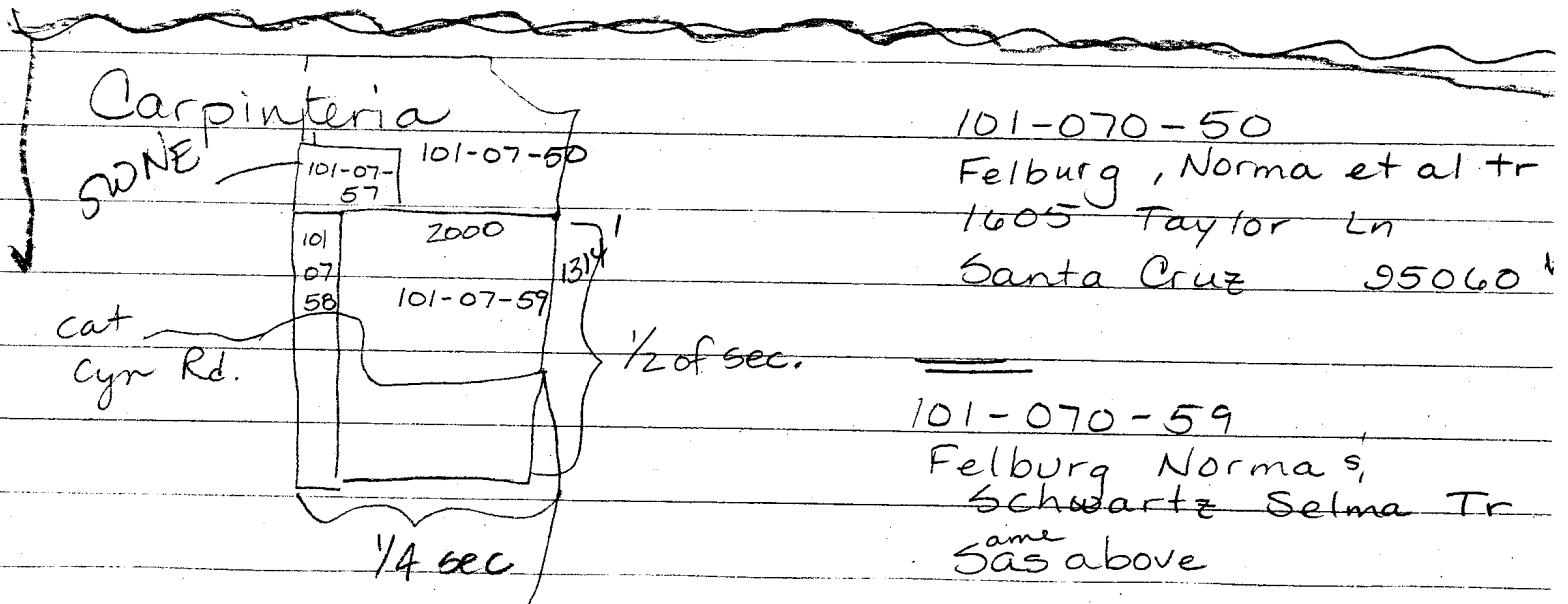 Carpinteria
SWNE
101-07-50
101-07-
57
101
07
58
2000
1314'
101-07-59
cat
Cyn Rd.
1/2 of sec.
1/4 sec
101-070-50
Felburg, Norma et al tr
1605 Taylor Ln
Santa Cruz 95060
101-070-59
Felburg Norma S,
Schwartz Selma Tr
Same as above